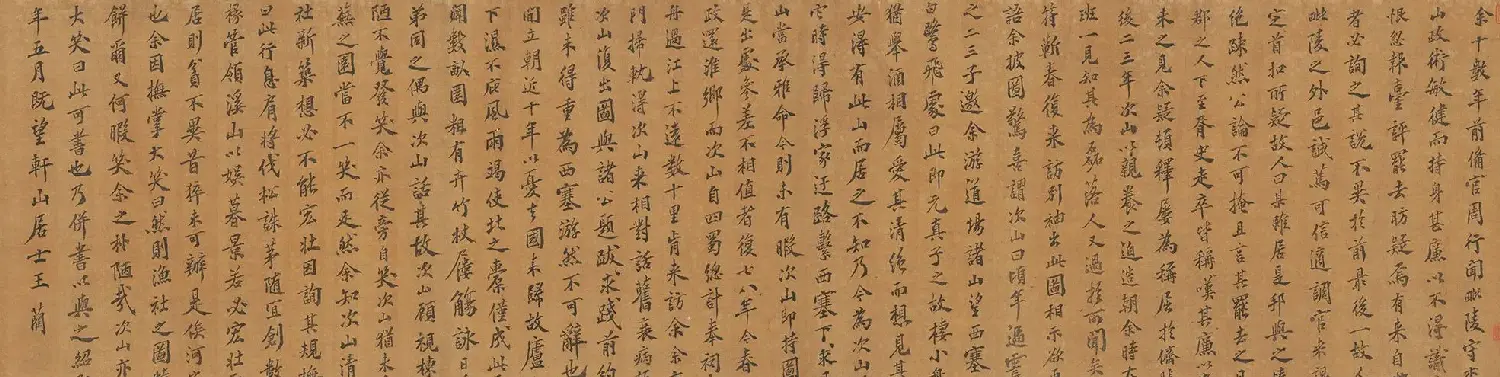 余十數年前備官周行聞毗陵守李
山政術敏健而持身甚廉以不得識
恨忽報臺評罷去昉疑焉有来自
者必詢之其說不異於前最後一故人
毗陵之外邑誠篤可信適調官来
定首扣所疑故人曰某雖居邦與之
絶踈然公論不可掩且言其罷去之
郡之人下至胥史走卒皆稱嘆其廉以
未之見余疑頓釋屢為稱屈於儕
後二三年次山以親養之迫造朝余時
班一見知其為磊落人又過於所聞矣
持蘄春復来訪别袖出此圖相示欲
語余披圖驚喜謂次山曰頃年過霅
之二三子邀余游道場諸山望西塞
白鷺飛處曰此即元真子之故棲小舟
猶舉酒相屬愛其清絶而想見其
安得有此山而居之不知乃今為次山
它時得歸浮家迂路繫西塞下求
山當承雅命今則未有暇次山即持圖
是出處參差不相值者復七八年今春
政還淮鄉而次山自四蜀總計奉祠
舟過江上不遠數十里肯来訪余
門掃軌得次山来相對話舊衰病
次山復出圖與諸公題跋求踐前約
雖未得重為西塞游然不可辭也
開立朝近十年以憂去國未歸故廬
聞數畝園粗有卉竹杖屨觴詠日
下濕不庇風雨瑒使北之橐僅成此
弟同之偶與次山話其故次山顧視棟
陋不覺發笑余亦從旁自笑次山猶未
蘓之園當不一笑而足然余知次山清
社新築想必不能宏壯因詢其規撫
曰此行息肩將伐松誅茅随宜創數
椽管領溪山以娱暮景若必宏壯
居則貧不異昔猝未可辦是俟河
也余因撫掌大笑曰然則漁社之圖
餅爾又何暇笑余之朴陋哉次山亦
大笑曰此可書也乃併書以與之紹
年五月既望軒山居士王藺